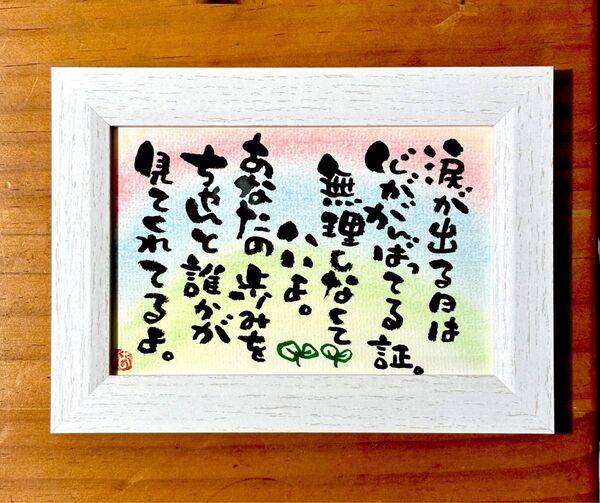 涙が出る日は
心ががんばってる証。
無理しなくて
いいよ。
あなたの歩みを
ちゃんと誰かが
見てくれてるよ。